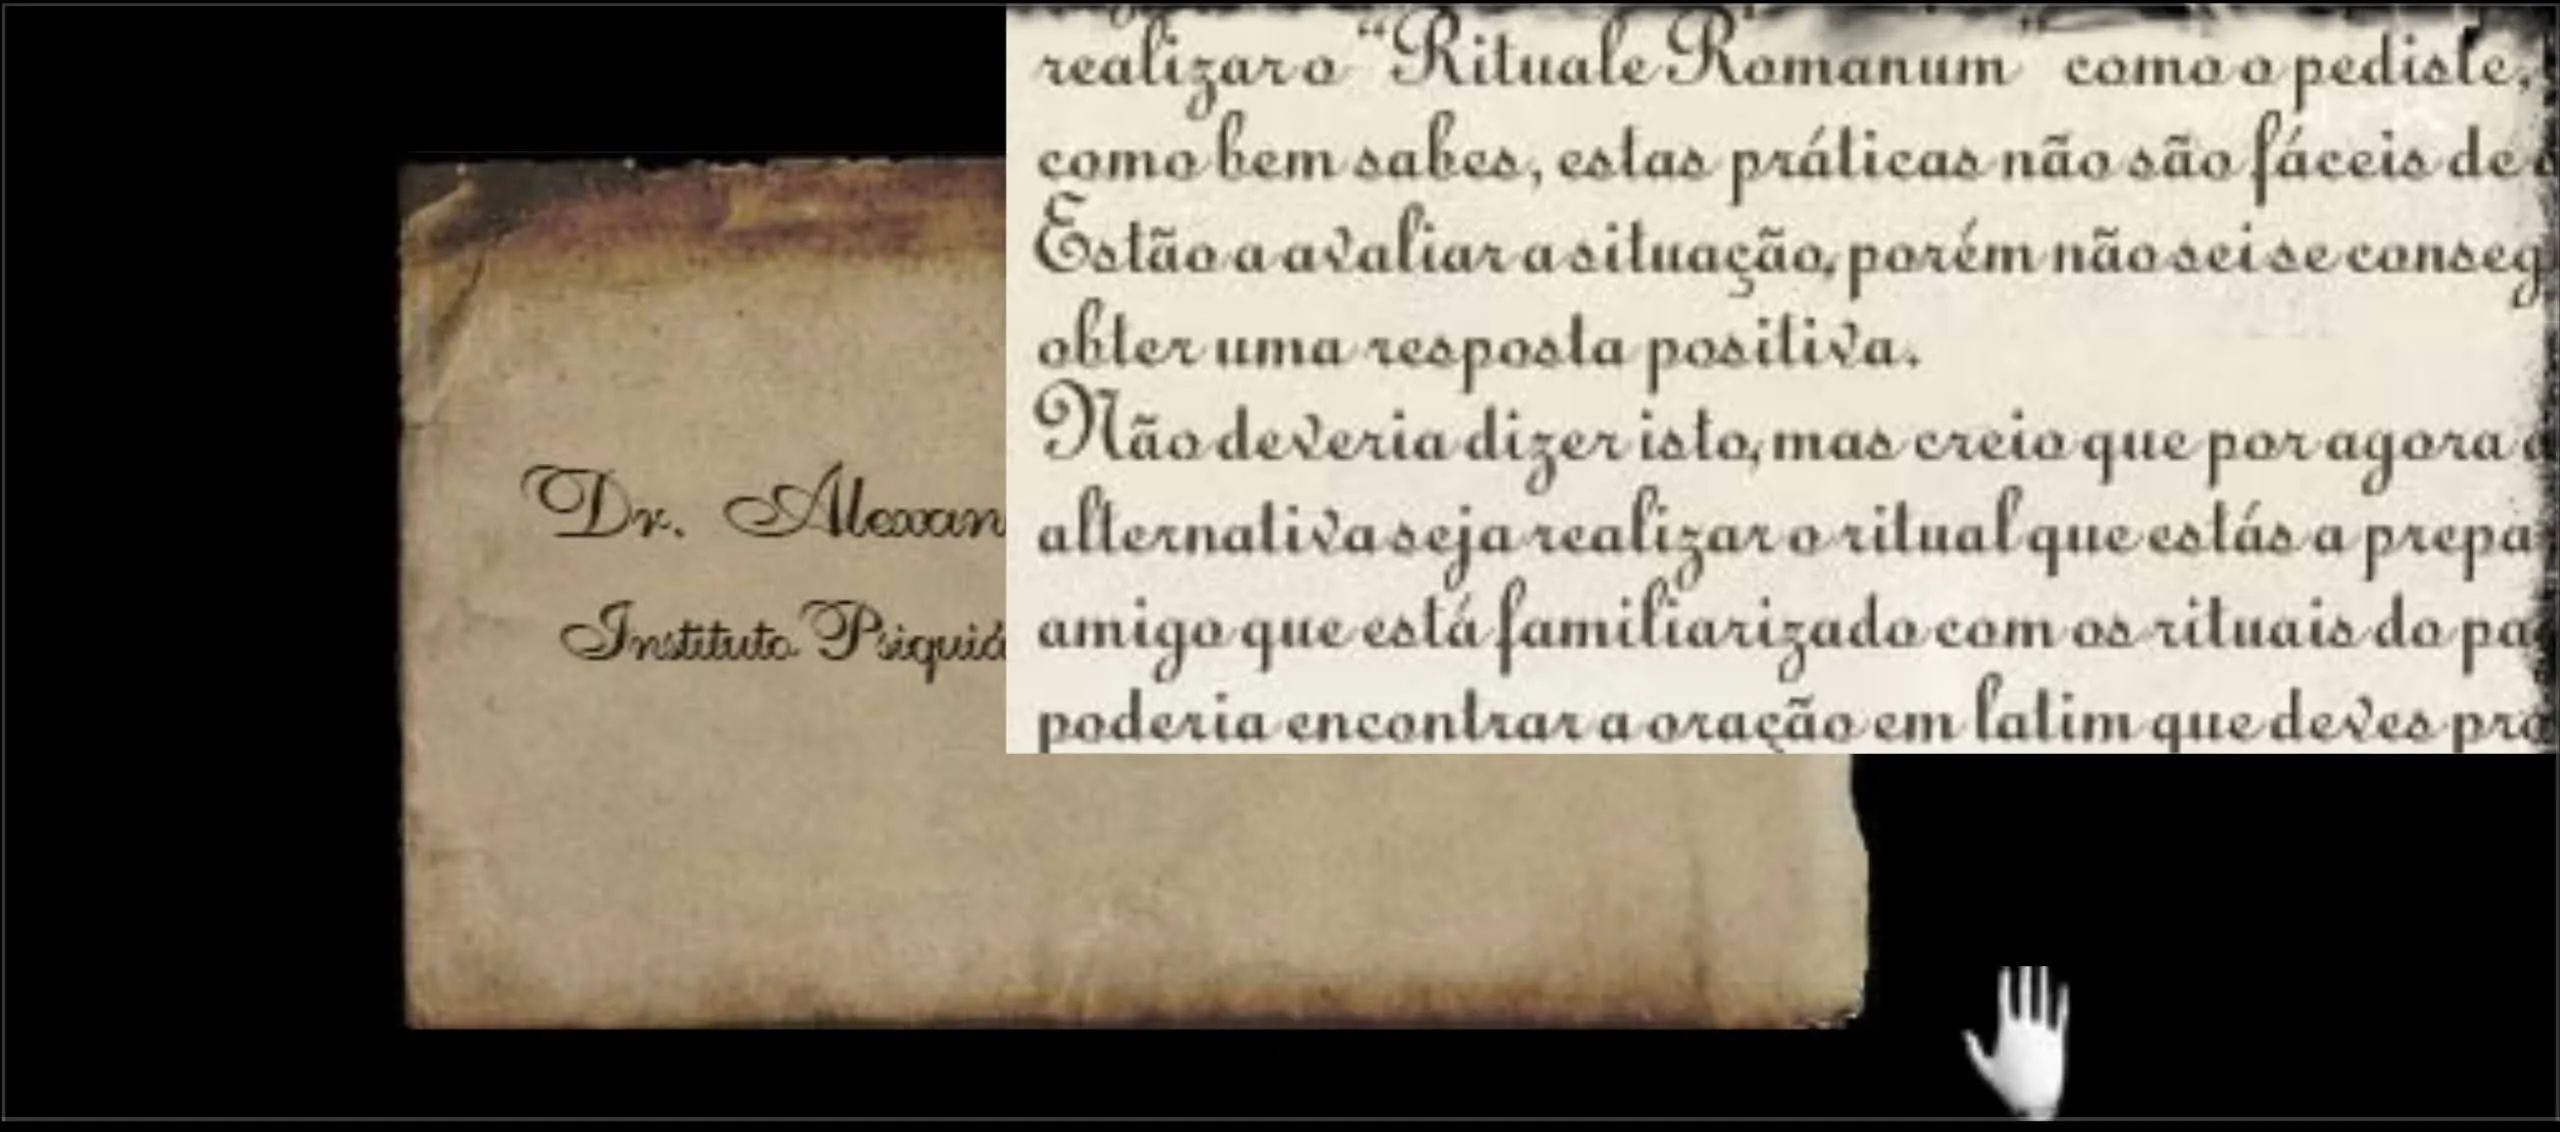 Dr. Alexan
Instituto Psiquiá
realizar o "Rituale Romanum" como o pediste,
como bem sabes, estas práticas não são fáceis de
Estão a avaliar a situação, porém não sei se conseg
obter uma resposta positiva.
Não deveria dizer isto, mas creio que por agora a
alternativa seja realizar o ritual que estás a prepa
amigo que está familiarizado com os rituais do pa
poderia encontrar a oração em latim que deves pro